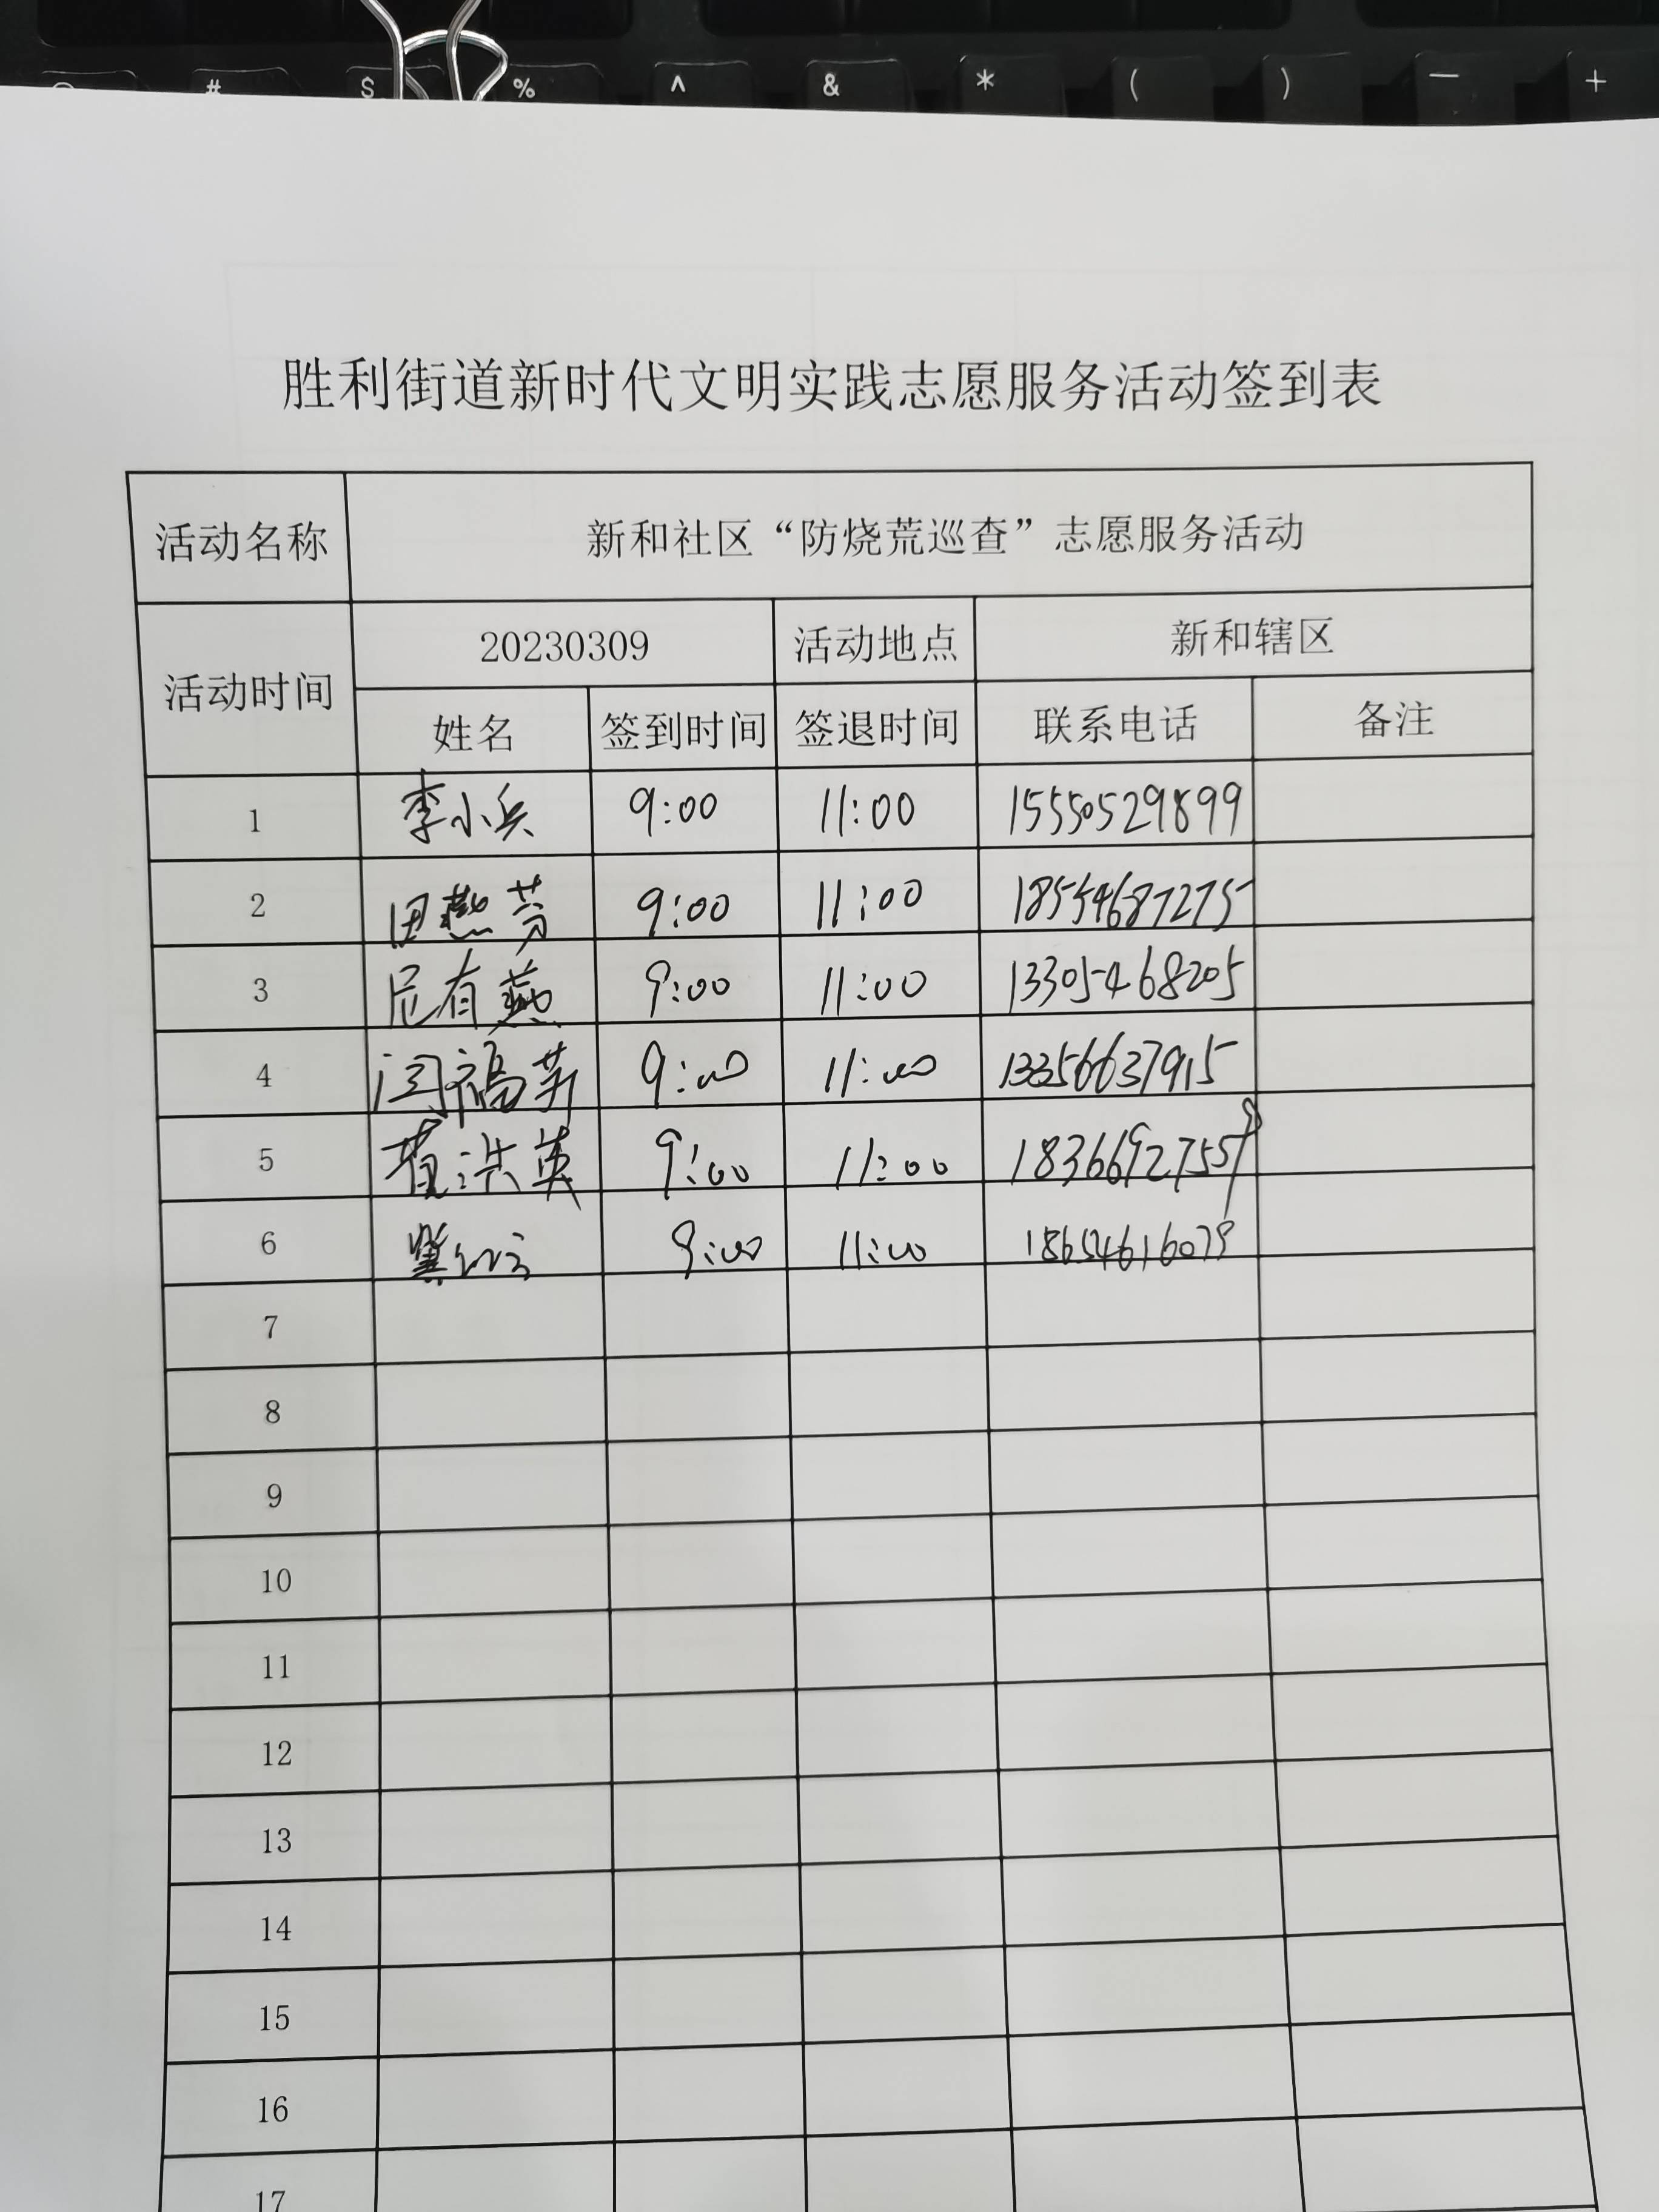 # $ % ^ & * ( ) — +
胜利街道新时代文明实践志愿服务活动签到表
活动名称 新和社区“防烧荒巡查”志愿服务活动
活动时间 20230309 活动地点 新和辖区
姓名 签到时间 签退时间 联系电话 备注
1 李小兵 9:00 11:00 15550529899
2 田燕芬 9:00 11:00 18554687275
3 尼有燕 9:00 11:00 13305468205
4 闫福英 9:00 11:00 13356637915
5 董洪英 9:00 11:00 18366927559
6 9:00 11:00 18654616079
7
8
9
10
11
12
13
14
15
16
17